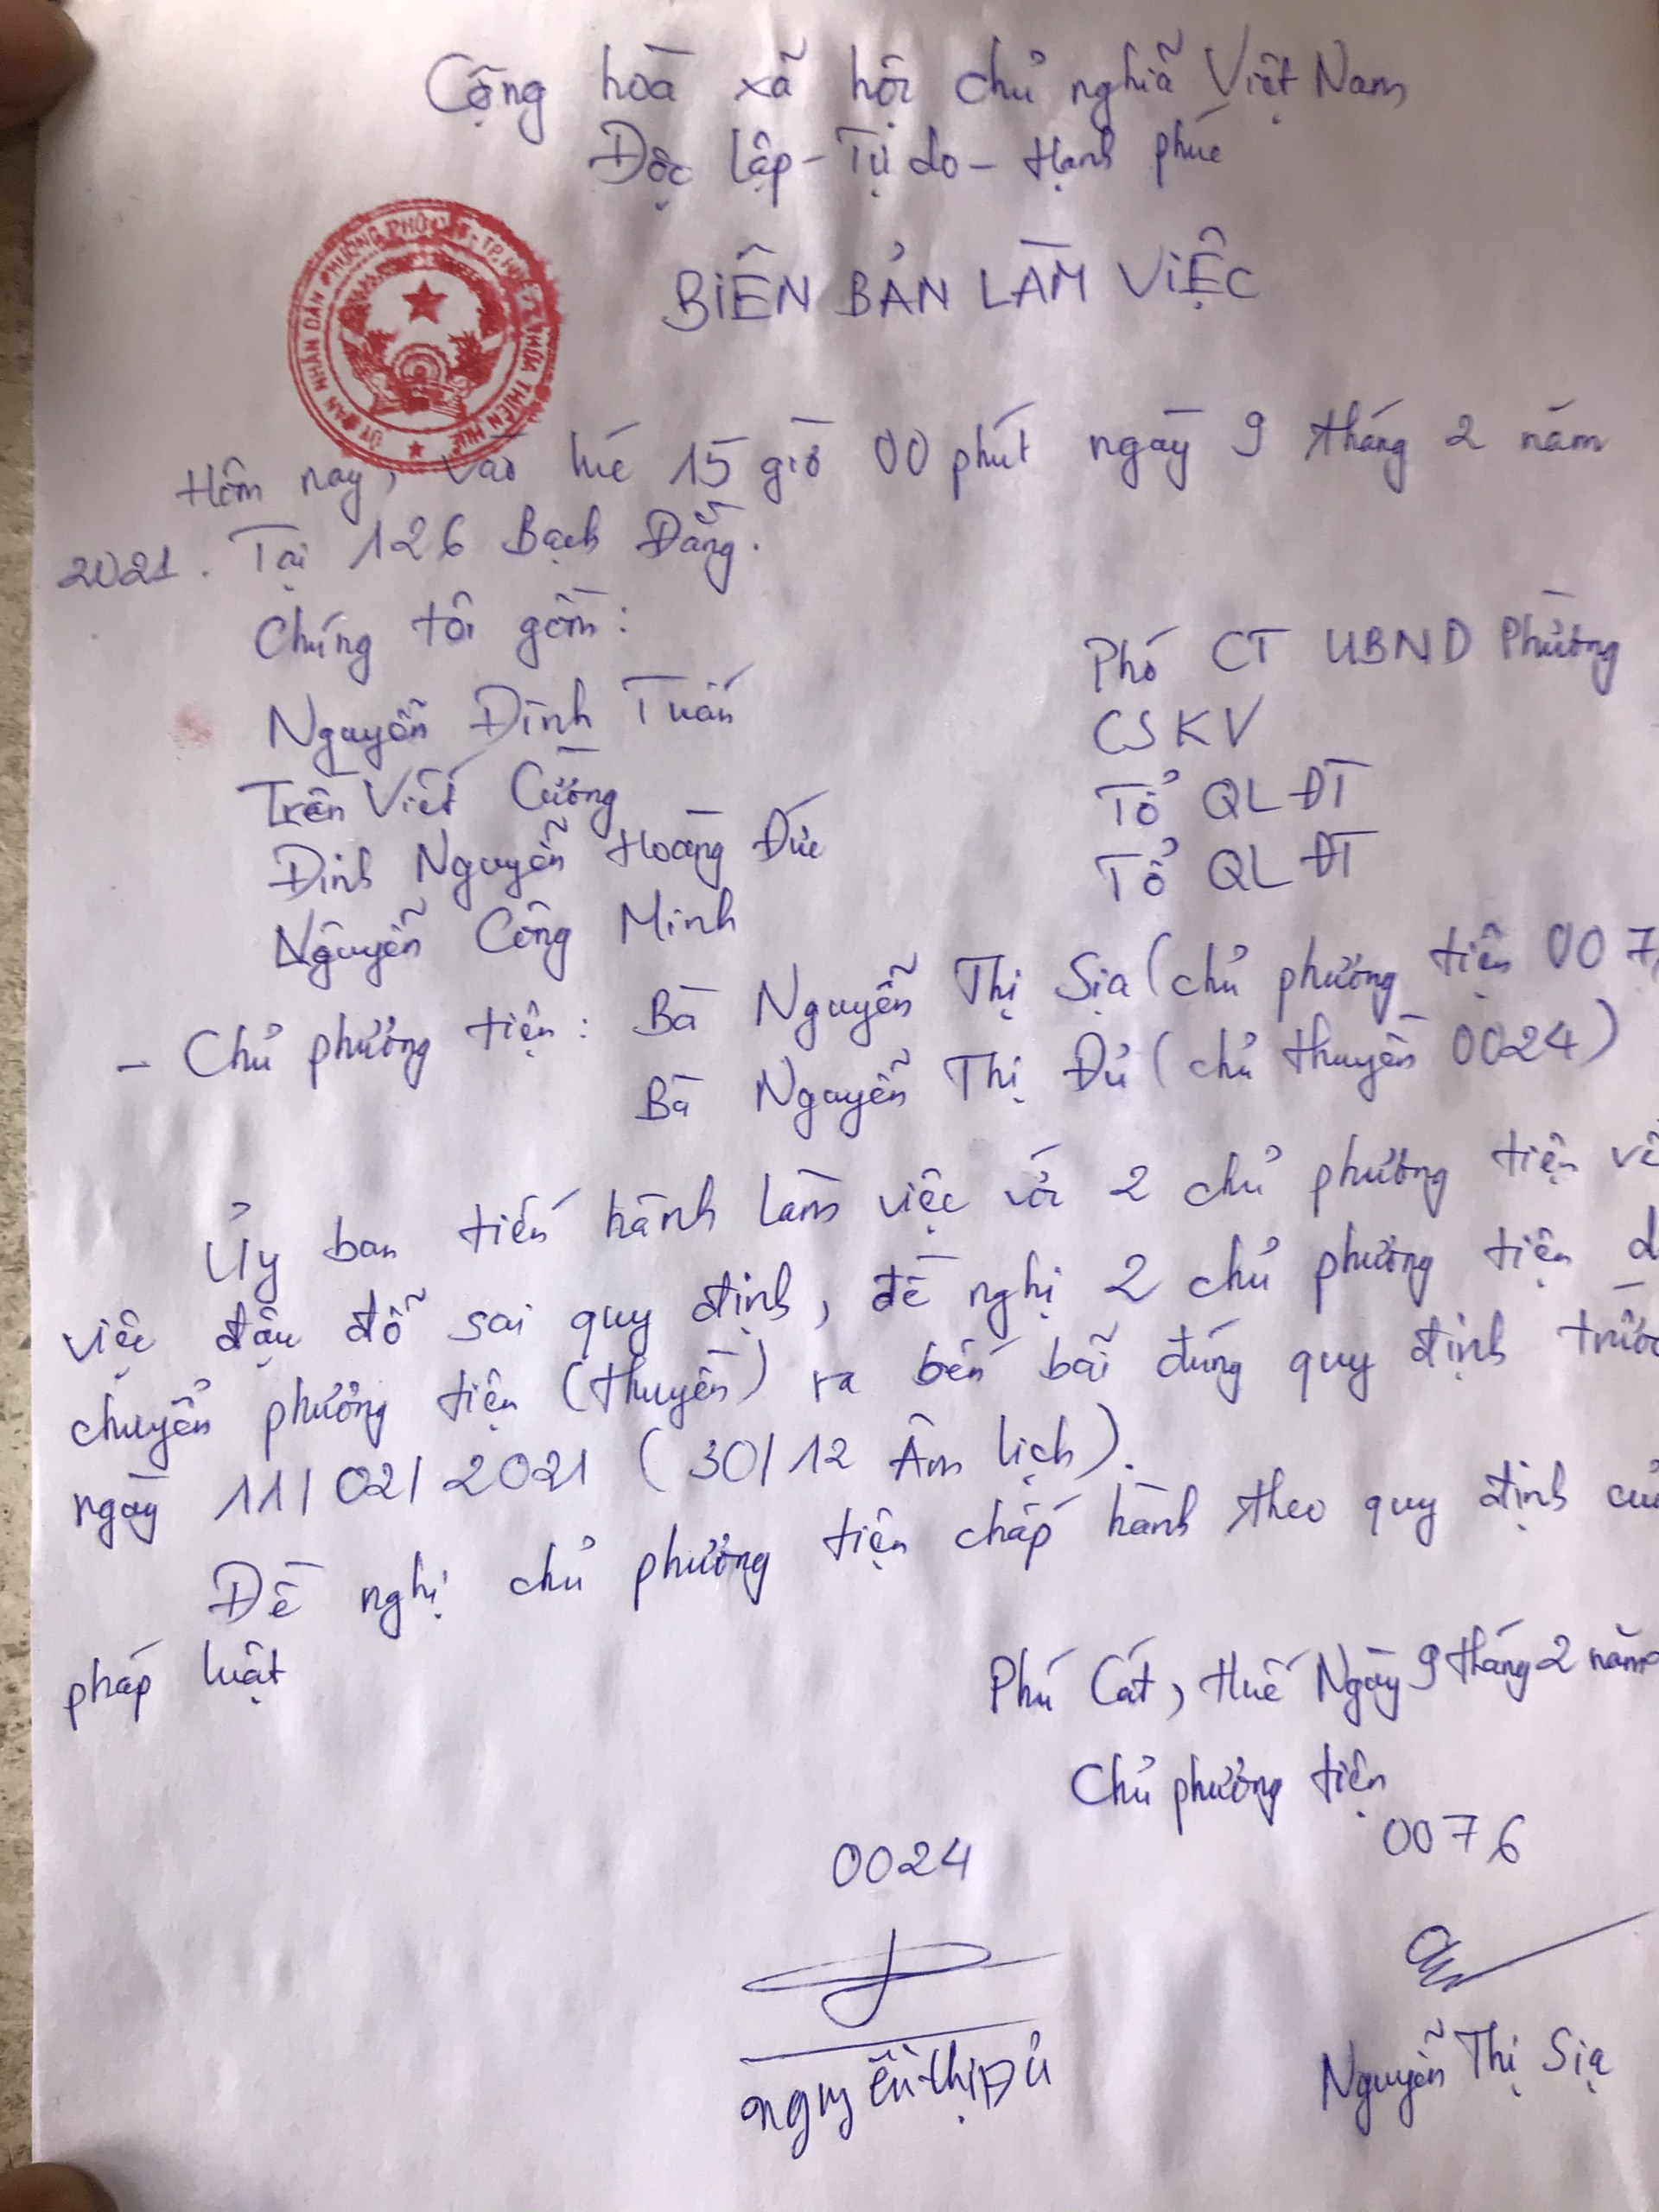 Cộng hòa xã hội chủ nghĩa Việt Nam
Độc lập - Tự do - Hạnh phúc
BIÊN BẢN LÀM VIỆC
ỦY BAN NHÂN DÂN PHƯỜNG PHÚ TP. HUẾ T. THỪA THIÊN HUẾ
Hôm nay, vào lúc 15 giờ 00 phút ngày 9 tháng 2 năm
2021. Tại 126 Bạch Đằng.
Chúng tôi gồm:
Nguyễn Đình Tuấn Phó CT UBND Phường
Trần Viết Cường CSKV
Đinh Nguyễn Hoàng Đức Tổ QLĐT
Nguyễn Công Minh Tổ QLĐT
- Chủ phương tiện: Bà Nguyễn Thị Sịa (chủ phương tiện 007
Bà Nguyễn Thị Đủ (chủ thuyền 0024)
Ủy ban tiến hành làm việc với 2 chủ phương tiện về
việc đậu đỗ sai quy định, đề nghị 2 chủ phương tiện d
chuyển phương tiện (thuyền) ra bến bãi đúng quy định trước
ngày 11/02/2021 (30/12 Âm lịch).
Đề nghị chủ phương tiện chấp hành theo quy định của
pháp luật
Phú Cát, Huế Ngày 9 tháng 2 năm
Chủ phương tiện
0024 0076
Nguyễn thị Đủ Nguyễn Thị Sịa